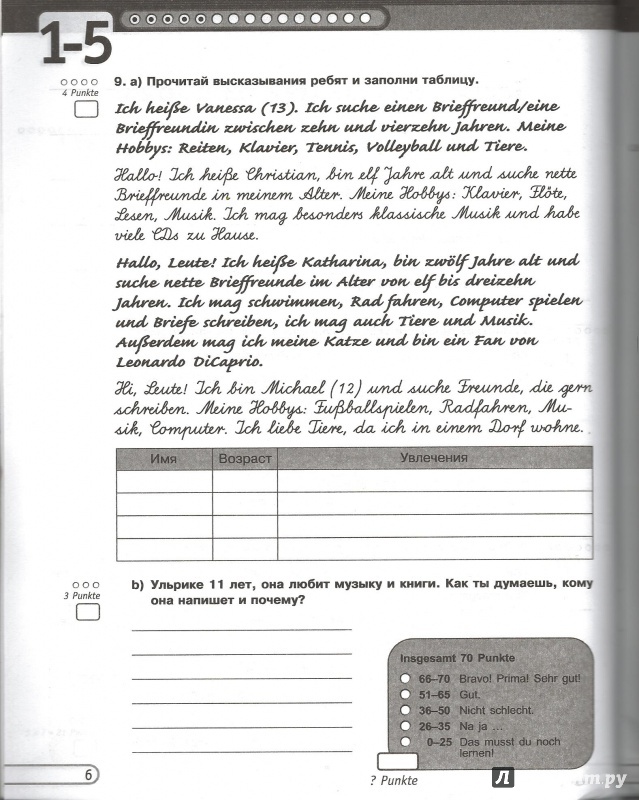 1–5
9. a) Прочитай высказывания ребят и заполни таблицу.
4 Punkte
Ich heiße Vanessa (13). Ich suche einen Brieffreund/eine
Brieffreundin zwischen zehn und vierzehn Jahren. Meine
Hobbys: Reiten, Klavier, Tennis, Volleyball und Tiere.
Hallo! Ich heiße Christian, bin elf Jahre alt und suche nette
Brieffreunde in meinem Alter. Meine Hobbys: Klavier, Flöte,
Lesen, Musik. Ich mag besonders klassische Musik und habe
viele CDs zu Hause.
Hallo, Leute! Ich heiße Katharina, bin zwölf Jahre alt und
suche nette Brieffreunde im Alter von elf bis dreizehn
Jahren. Ich mag schwimmen, Rad fahren, Computer spielen
und Briefe schreiben, ich mag auch Tiere und Musik.
Außerdem mag ich meine Katze und bin ein Fan von
Leonardo DiCaprio.
Hi, Leute! Ich bin Michael (12) und suche Freunde, die gern
schreiben. Meine Hobbys: Fußballspielen, Radfahren, Mu-
sik, Computer. Ich liebe Tiere, da ich in einem Dorf wohne.
Имя Возраст Увлечения
b) Ульрике 11 лет, она любит музыку и книги. Как ты думаешь, кому
она напишет и почему?
3 Punkte
Insgesamt 70 Punkte
66–70 Bravo! Prima! Sehr gut!
51–65 Gut.
36–50 Nicht schlecht.
26–35 Na ja ...
0–25 Das musst du noch
lernen!
? Punkte
6
Л